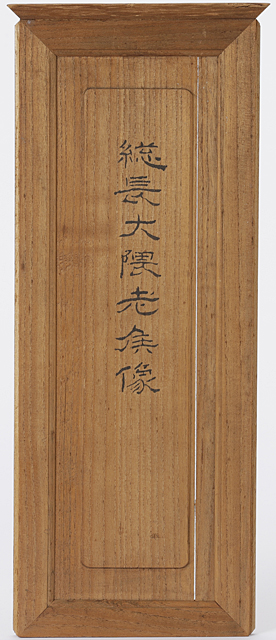 総長大隈老侯像